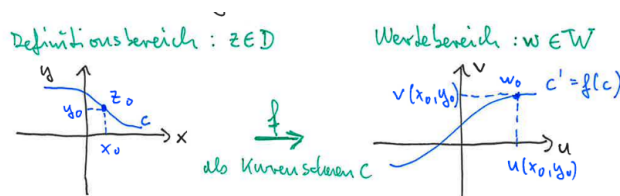 Definitionsbereich : z∈D
Wertebereich : w∈W
y
z₀
y₀
c
x
x₀
f
als Kurvenscharen C
v
w₀
c' = f(c)
v(x₀,y₀)
u
u(x₀,y₀)